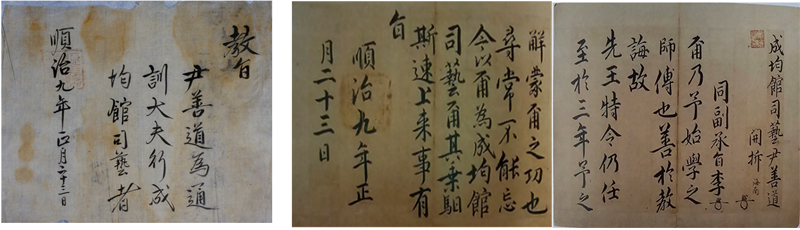 教旨
尹善道為通
訓大夫行成
均館司藝者
順治九年正月二十三日
成均館司藝尹善道
開拆
海南
同副承旨李
爾乃予始學之
師傅也善於教
誨故
先王特令仍任
至於三年予之
解蒙爾之功也
尋常不能忘
今以爾為成均館
司藝爾其乘馹
斯速上來事有
旨
順治九年正
月二十三日